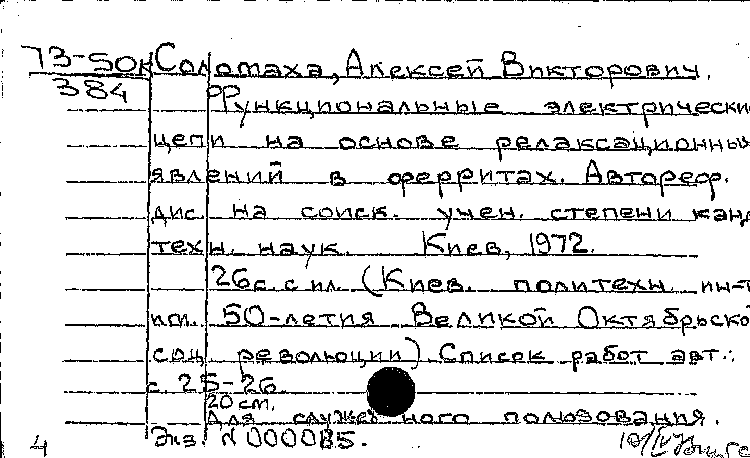 73-50к Соломаха, Алексей Викторович.
384
Функциональные электрически
цепи на основе релаксационных
явлений в ферритах. Автореф.
дис. на соиск. учен. степени канд
техн. наук. Киев, 1972.
26с. с ил. (Киев. политехн. ин-т
им. 50-летия Великой Октябрьско
соц. революции). Список работ авт.:
с. 25-26.
20 см.
Для служебного пользования.
Экз N 000085.
4